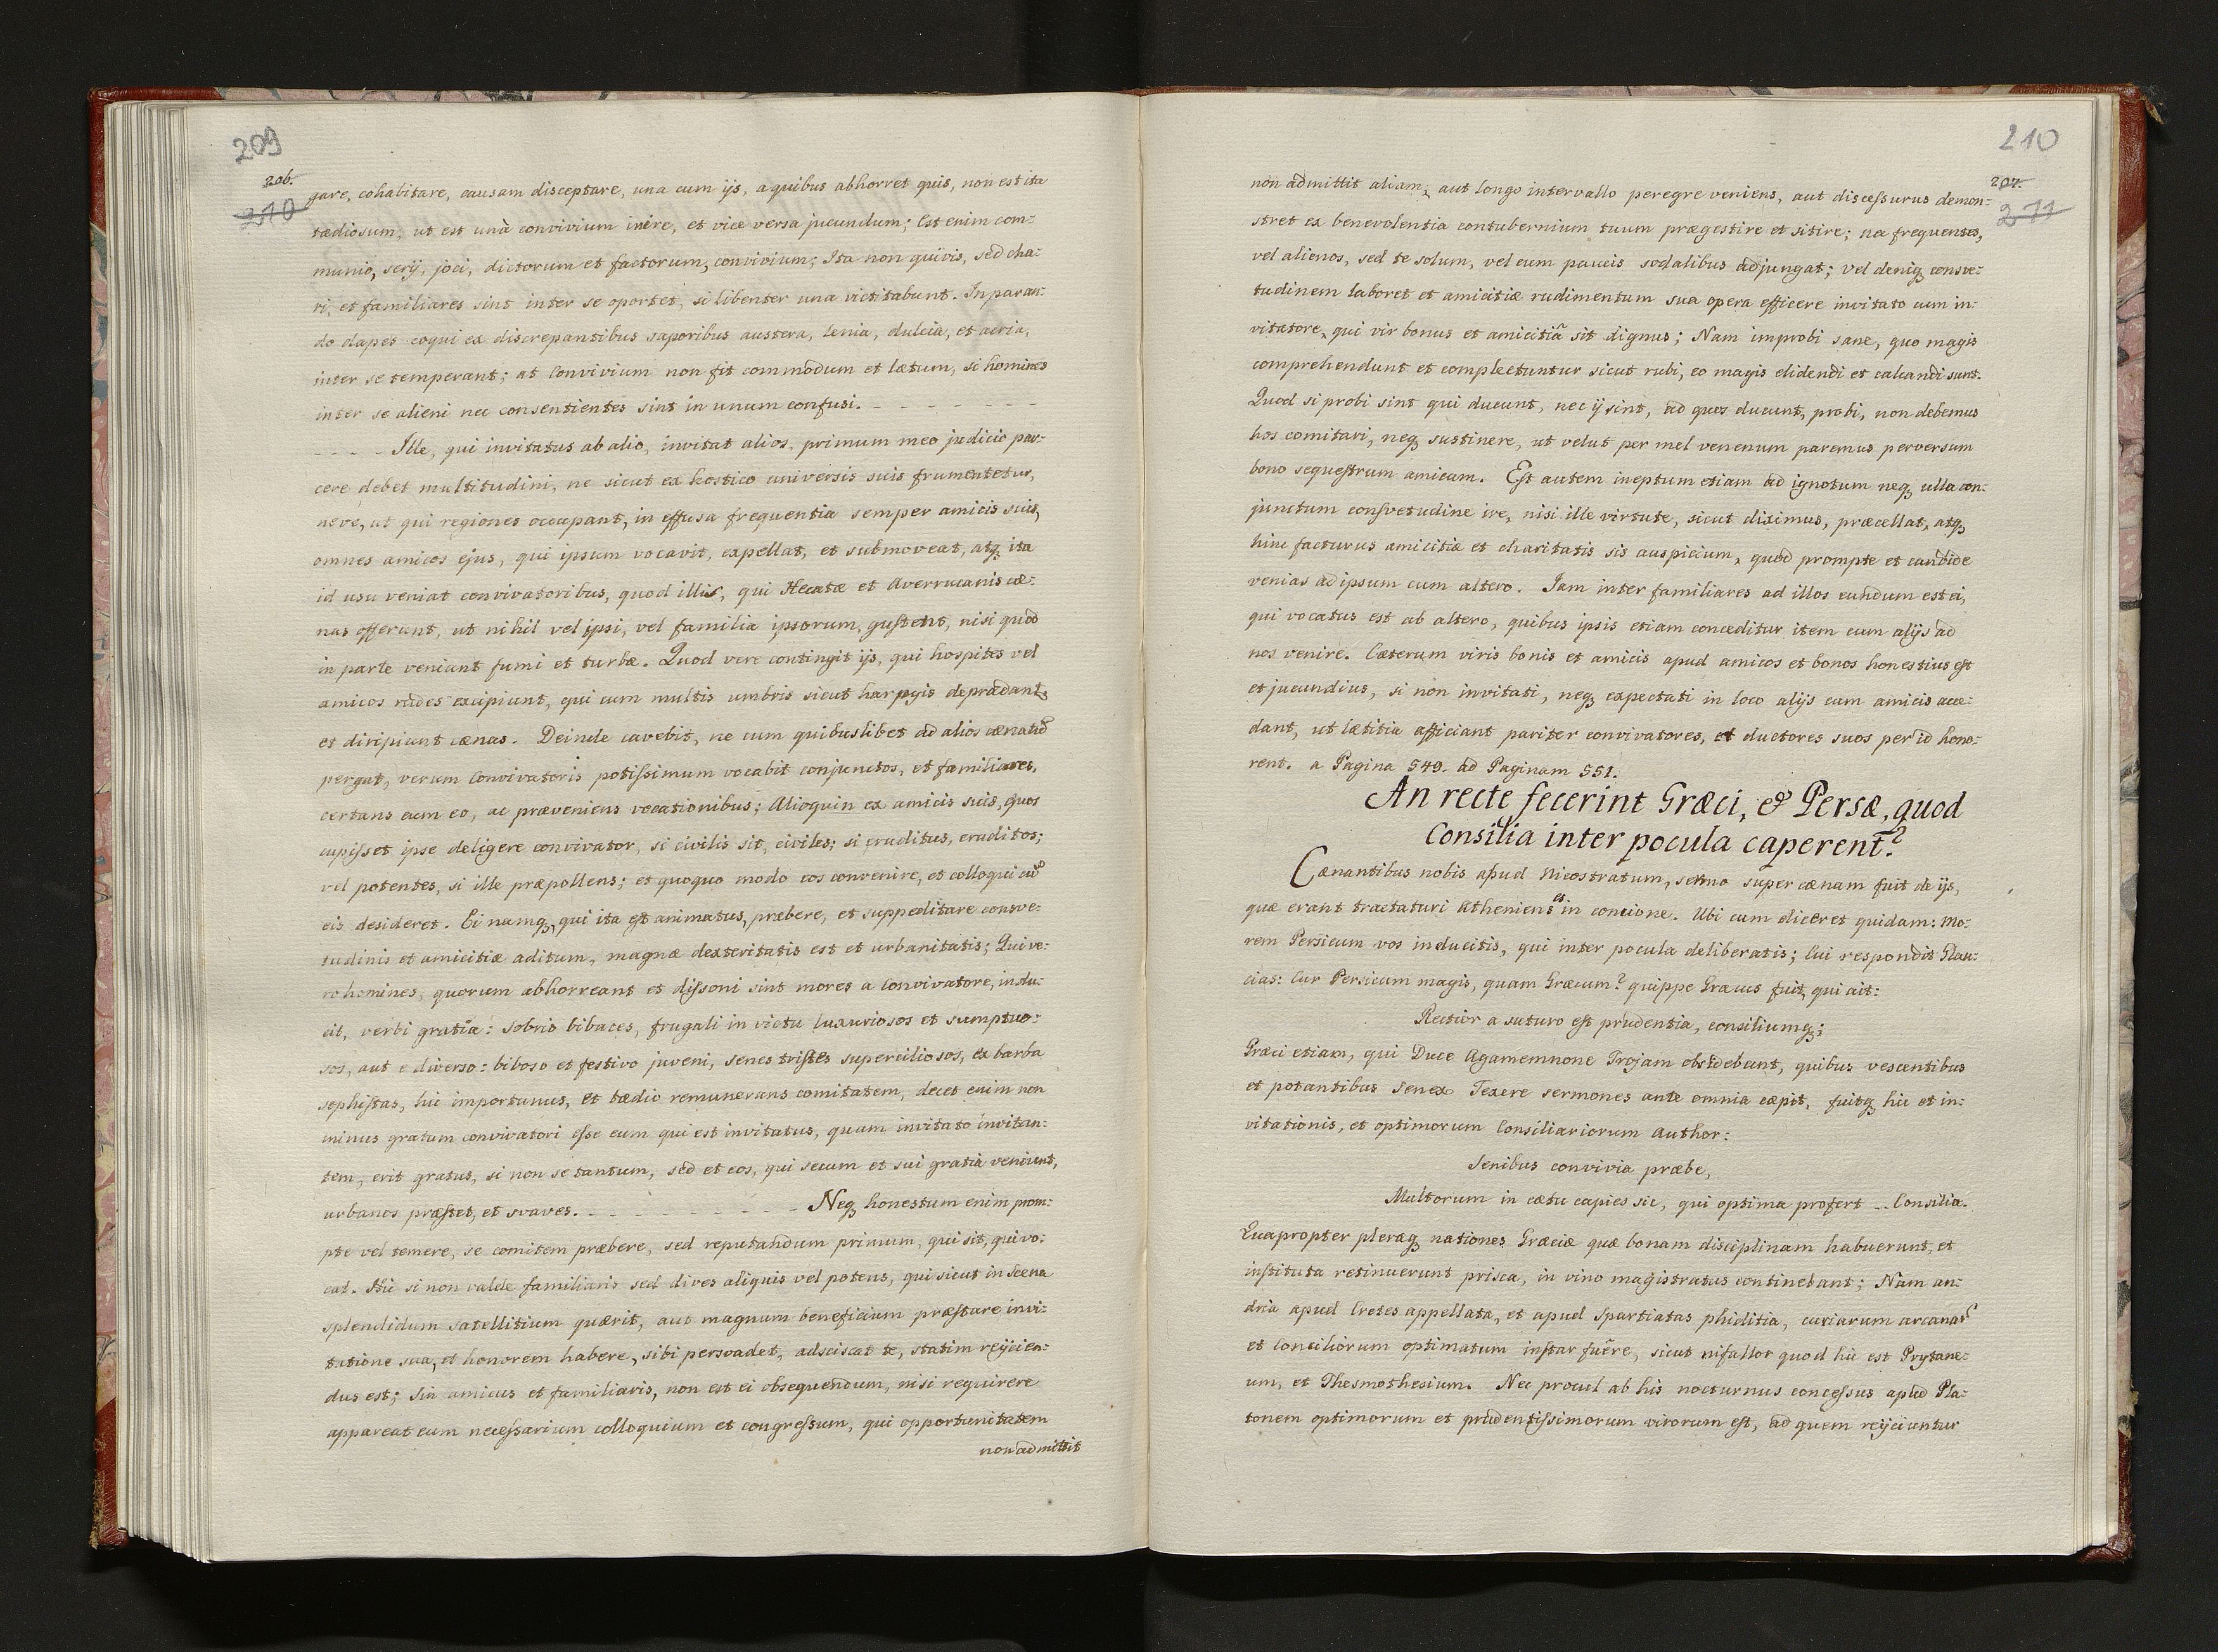 209
206.
210
gare, cohabitare, causam disceptare, una cum ijs, a quibus abhorret quis, non est ita
tædiosum, ut est unà convivium inire, et vice versa jucundum; Est enim com-
munio, serij, joci, dictorum et factorum, convivium; Ita non quivis, sed cha-
ri, et familiares sint inter se oportet, si libenter una victitabunt. In paran-
do dapes coqui ex discrepantibus saporibus austera, lenia, dulcia, et acria,
inter se temperant; at Convivium non fit commodum et lætum, si homines
inter se alieni nec consentientes sint in unum confusi. - - - - - - -
- - - - Ille, qui invitatus ab alio, invitat alios, primum meo judicio par-
cere debet multitudini, ne sicut ex hostico universis suis frumentetur,
neve, ut qui regiones occupant, in effusa frequentia semper amicis suis,
omnes amicos ejus, qui ipsum vocavit, expellat, et submoveat, atq ita
id usu veniat convivatoribus, quod illis, qui Hecatæ et Averruncanis cæ-
nas offerunt, ut nihil vel ipsi, vel familia ipsorum, gustent, nisi quod
in parte veniant fumi et turbæ. Quod vere contingit ijs, qui hospites vel
amicos rudes excipiunt, qui cum multis umbris sicut harpyis deprædant
et diripiunt cænas. Deinde cavebit, ne cum quibuslibet ad alios cænatũ
pergat, verum Convivatoris potissimum vocabit conjunctos, et familiares,
certans cum eo, ac præveniens vocationibus; Alioquin ex amicis suis, quos
cupisset ipse deligere convivator, si civilis sit, civiles; si eruditus, eruditos;
vel potentes, si ille præpollens; et quoquo modo eos convenire, et colloqui cũ
eis desideret. Ei namq, qui ita est animatus, præbere, et suppeditare consve-
tudinis et amicitiæ aditum, magnæ dexteritatis est et urbanitatis; Qui ve-
ro homines, quorum abhorreant et dissoni sint mores a Convivatore, indu-
cit, verbi gratia: sobrio bibaces, frugali in victu luxuriosos et sumptuo-
sos, aut e diverso: biboso et festivo juveni, senes tristes superciliosos, ex barba
sophistas, hic importunus, et tædio remunerans comitatem, decet enim non
minus gratum convivatori esse eum qui est invitatus, quam invitato invitan-
tem, erit gratus, si non se tantum, sed et eos, qui secum et sui gratia veniunt,
urbanos præstet, et svaves. - - - - - - - - - Neq honestum enim prom-
pte vel temere, se comitem præbere, sed reputandum primum, qui sit, qui vo-
cat. Hic si non valde familiaris sed dives aliquis vel potens, qui sicut in Scena
splendidum satellitium quærit, aut magnum beneficium præstare invi-
tatione sua, et honorem habere, sibi persvadet, adsciscat te, statim rejicien-
dus est; Sin amicus et familiaris, non est ei obsequendum, nisi requirere
appareat eum necessarium colloquium et congressum, qui opportunitatem
non admittit
210
207.
211
non admittit aliam, aut longo intervallo peregre veniens, aut discessurus demon-
stret ex benevolentia contubernium tuum prægestire et sitire; nec frequentes,
vel alienos, sed te solum, vel cum paucis sodalibus adjungat; vel deniq consve-
tudinem laboret et amicitiæ rudimentum sua opera efficere invitato cum in-
vitatore, qui vir bonus et amicitiâ sit dignus; Nam improbi sane, quo magis
comprehendunt et complectuntur sicut rubi, eo magis elidendi et calcandi sunt.
Quod si probi sint qui ducunt, nec ij sint, ad quos ducunt, probi, non debemus
hos comitari, neq sustinere, ut velut per mel venenum paremus perversum
bono sequestrum amicum. Est autem ineptum etiam ad ignotum neq ulla con-
junctum consvetudine ire, nisi ille virtute, sicut diximus, præcellat, atq
hinc facturus amicitiæ et charitatis sis auspicium, quod prompte et candide
venias ad ipsum cum altero. Iam inter familiares ad illos eundum est ei,
qui vocatus est ab altero, quibus ipsis etiam conceditur item cum alijs ad
nos venire. Cæterum viris bonis et amicis apud amicos et bonos honestius est
et jucundius, si non invitati, neq expectati in loco alijs cum amicis acce-
dant, ut lætitia afficiant pariter convivatores, et ductores suos per id hono-
rent. a Pagina 549. ad Paginam 551.
An recte fecerint Græci, & Persæ, quod
Consilia inter pocula caperent?
Cænantibus nobis apud Nicostratum, sermo super cænam fuit de ijs,
quæ erant tractaturi Athenienses in concione. Ubi cum diceret quidam: Mo-
rem Persicum vos inducitis, qui inter pocula deliberatis; Cui respondit Glau-
cias: Cur Persicum magis, quam Græcum? quippe Græcus fuit, qui ait:
Rectior a suturo est prudentia, consiliumq;
Græci etiam, qui Duce Agamemnone Trojam obsidebant, quibus vescentibus
et potantibus Senex Texere sermones ante omnia cæpit, fuitq hic et in-
vitationis, et optimorum Consiliariorum Author:
Senibus convivia præbe,
Multorum in cætu capies sic, qui optima profert -- Consilia.
Quapropter pleræq nationes Græciæ quæ bonam disciplinam habuerunt, et
instituta retinuerunt prisca, in vino magistratus continebant; Nam an-
dria apud Cretes appellata, et apud Spartiatas phiditia, curiarum arcanarũ
et Conciliorum optimatum instar fuêre, sicut ni fallor quod hic est Prytane-
um, et Thesmothesium. Nec procul ab his nocturnus concessus apud Pla-
tonem optimorum et prudentissimorum virorum est, ad quem rejiciuntur